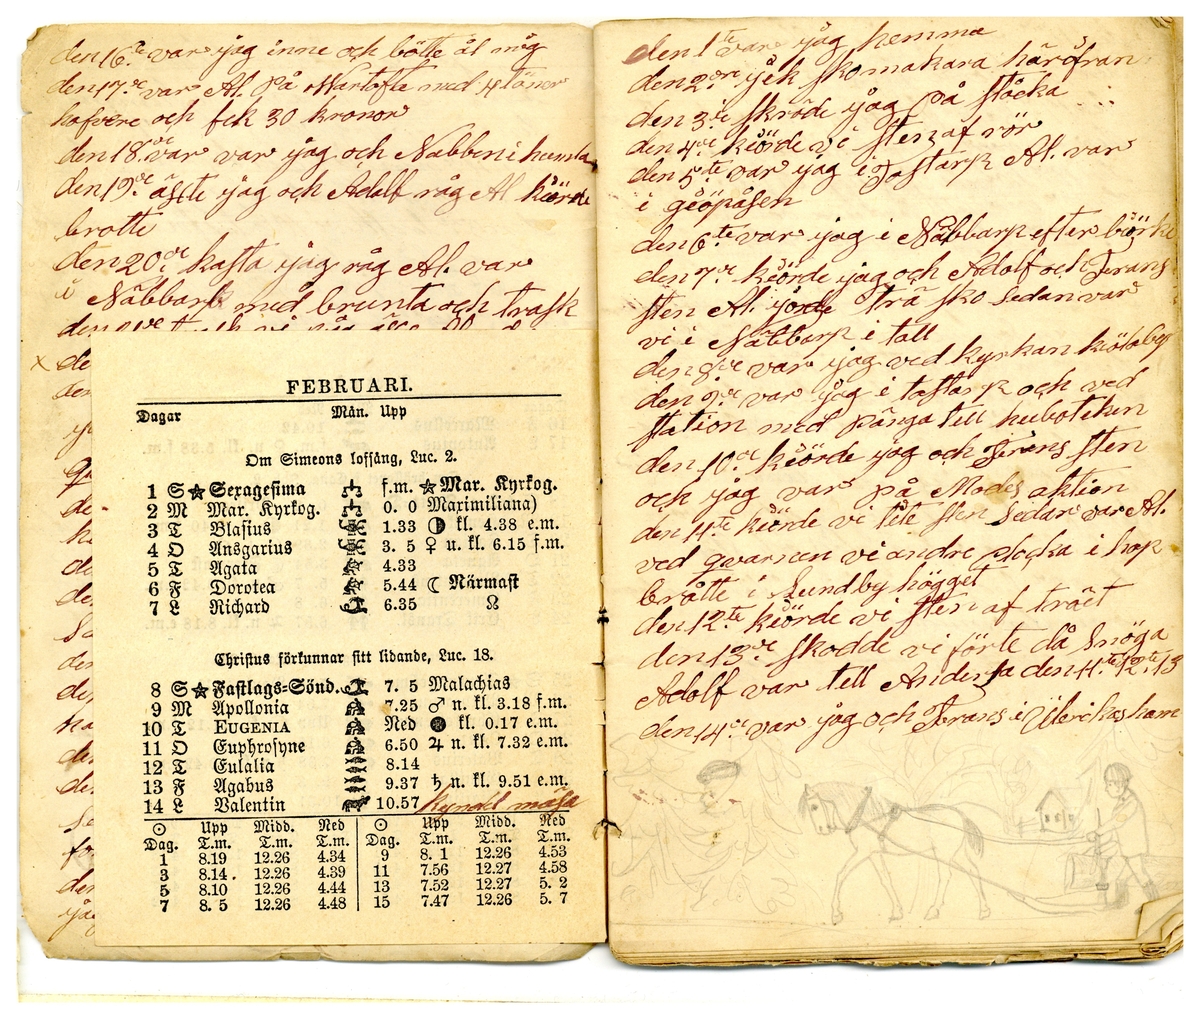 den 16.de var jag inne och bötte ål mig
den 17.de var Al. på Wartofte med 4 töner
hafvere och fck 30 kronor
den 18.de var var jag och Nabben i humla
den 19.de åste jag och Adolf råg Al körde
brotte
den 20.de kasta jag råg Al. var
i Näbbarp med brunta och trask
den
× de
den
FEBRUARI.
Dagar Mån. Upp
Om Simeons lofsång, Luc. 2.
1 S ☆ Sexagesima f.m. ☆ Mar. Kyrkog.
2 M Mar. Kyrkog. 0. 0 Maximiliana)
3 T Blasius 1.33 ◑ kl. 4.38 e.m.
4 O Ansgarius 3. 5 ♀ u. kl. 6.15 f.m.
5 T Agata 4.33
6 F Dorotea 5.44 ☾ Närmast
7 L Richard 6.35 ☊
Christus förkunnar sitt lidande, Luc. 18.
8 S ☆ Fastlags-Sönd. 7. 5 Malachias
9 M Apollonia 7.25 ♂ n. kl. 3.18 f.m.
10 T EUGENIA Ned ● kl. 0.17 e.m.
11 O Euphrosyne 6.50 ♃ n. kl. 7.32 e.m.
12 T Eulalia 8.14
13 F Agabus 9.37 ♄ n. kl. 9.51 e.m.
14 L Valentin 10.57 kyndel mäsa
☉ Upp Midd. Ned ☉ Upp Midd. Ned
Dag. T.m. T.m. T.m. Dag. T.m. T.m. T.m.
1 8.19 12.26 4.34 9 8. 1 12.26 4.53
3 8.14 12.26 4.39 11 7.56 12.27 4.58
5 8.10 12.26 4.44 13 7.52 12.27 5. 2
7 8. 5 12.26 4.48 15 7.47 12.26 5. 7
den 1te var jag hemma
den 2dre jek skomakara häröfran
den 3.de skröde jag på stocka
den 4.de körde vi sten af rör
den 5.te var jag i Tostarp Al. var
i göpåsen
den 6.te var jag i Näbbarp efter börke
den 7.de körde jag och Adolf och Frans
sten Al. jorde trä sko sedan var
vi i Näbbarp i tall
den 8de var jag ved kyrkan
den 9.de var jag i tostarp och ved
station med pänga tell kuboteken
den 10.de körde jag och Frans sten
och jag var på Modes aktion
den 11te körde vi lite sten sedan var Al.
ved qvarnen vi andre plocka i hop
bråtte i Lundby högget
den 12te körde vi sten af träet
den 13.de skodde vi förte då snöga
Adolf var tell Anderſa den 11te 12te 13
den 14.de var jag och Frans i Ulerikasham